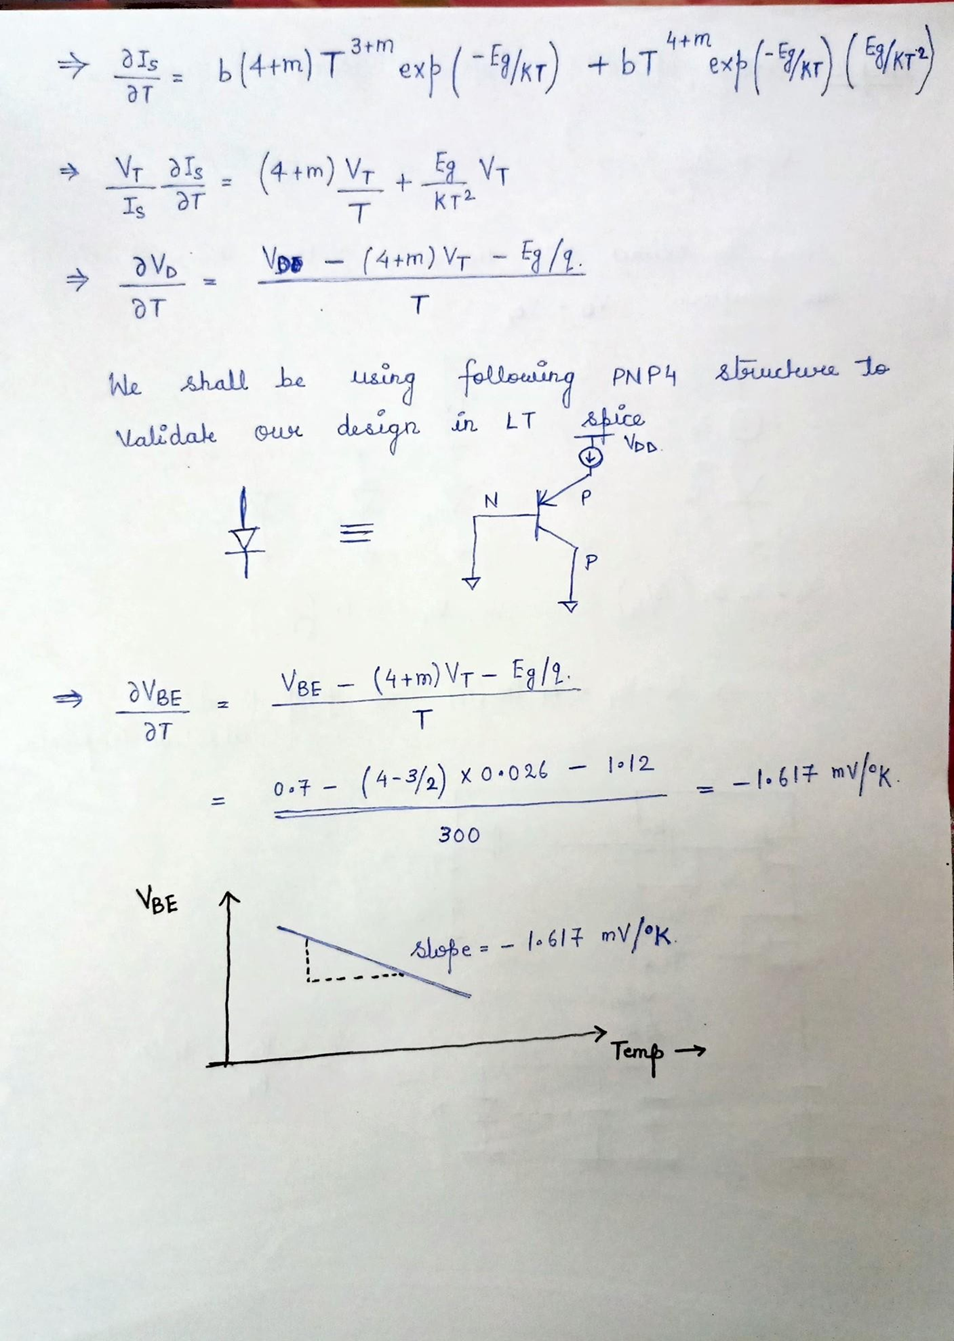 ⇒ ∂Is/∂T = b(4+m) T^(3+m) exp(-Eg/KT) + bT^(4+m) exp(-Eg/KT) (Eg/KT²)
⇒ VT/Is ∂Is/∂T = (4+m) VT/T + Eg/KT² VT
⇒ ∂VD/∂T = (VD - (4+m) VT - Eg/q.)/T
We shall be using following PNP4 structure to
Validate our design in LT spice
VDD.
N P
≡
P
⇒ ∂VBE/∂T = (VBE - (4+m) VT - Eg/q.)/T
= (0.7 - (4-3/2) × 0.026 - 1.12)/300 = -1.617 mV/°K.
VBE
slope = - 1.617 mV/°K.
Temp →